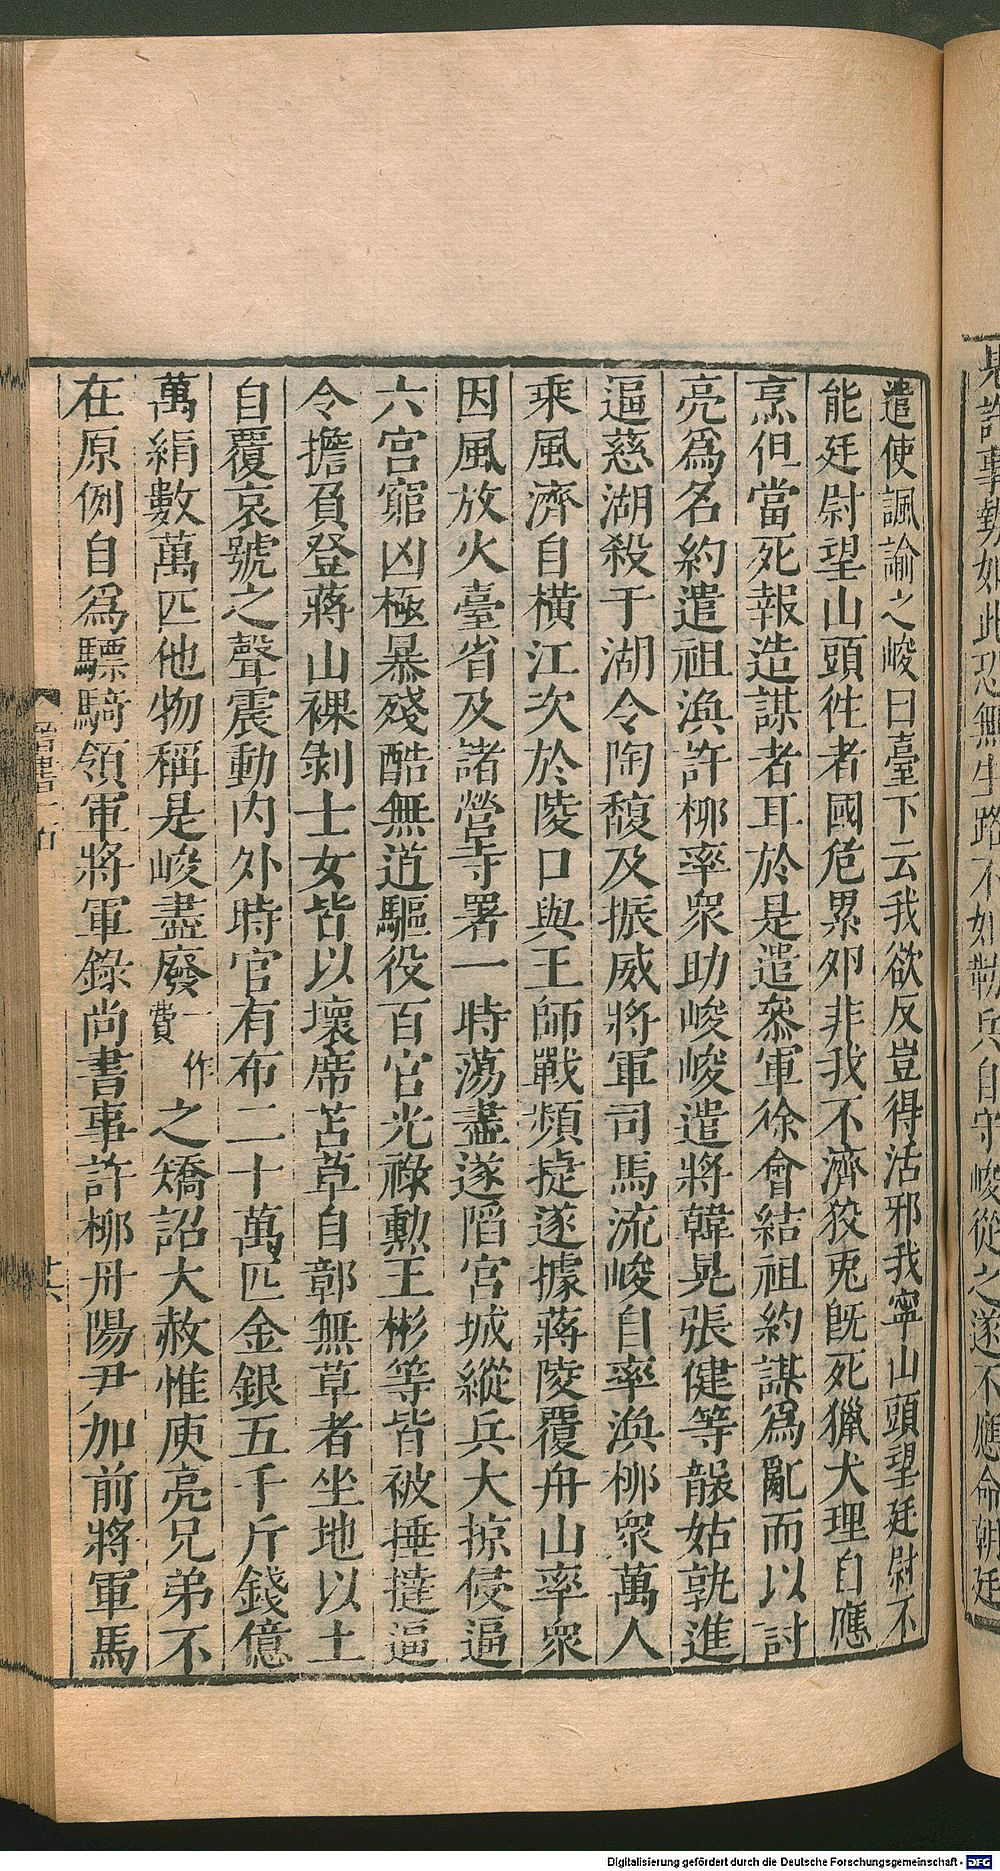 是討事勢如此恐無生路不如勒兵自守峻從之遂不應命朝廷
遣使諷諭之峻曰臺下云我欲反豈得活邪我寧山頭望廷尉不
能廷尉望山頭徃者國危累夘非我不濟狡兎旣死獵犬理自應
烹但當死報造謀者耳於是遣叅軍徐會結祖約謀爲亂而以討
亮爲名約遣祖渙許栁率衆助峻峻遣將韓晃張健等襲姑孰進
逼慈湖殺于湖令陶馥及振威將軍司馬流峻自率渙栁衆萬人
乘風濟自橫江次於陵口與王師戰頻捷遂據蔣陵覆舟山率衆
因風放火臺省及諸營寺署一時蕩盡遂䧟宮城縱兵大掠侵逼
六宮窮凶極暴殘酷無道驅役百官光祿勳王彬等皆被捶撻逼
令擔負登蔣山裸剝士女皆以壞席苫草自鄣無草者坐地以土
自覆哀號之聲震動内外時官有布二十萬匹金銀五千斤錢億
萬絹數萬匹他物稱是峻盡廢一作費之矯詔大赦惟庾亮兄弟不
在原例自爲驃騎領軍將軍錄尚書事許栁丹陽尹加前將軍馬
Digitalisierung gefördert durch die Deutsche Forschungsgemeinschaft - DFG